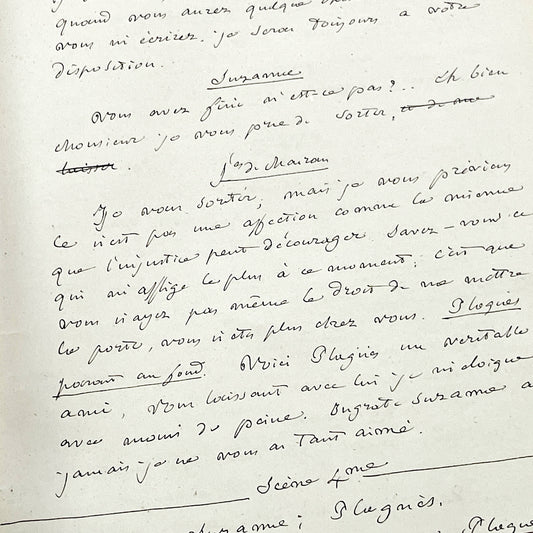 quand vous aurez quelque
vous m'écrirez. je serai toujours à votre
disposition.
Suzanne
Vous avez fini n'est-ce pas?.. Eh bien
monsieur je vous prie de sortir, et de me
laisser.
de Mairan
Je vais sortir, mais je vous préviens
Ce n'est pas une affection comme la mienne
que l'injustice peut décourager. Savez-vous ce
qui m'afflige le plus à ce moment; c'est que
vous n'ayez pas même le droit de me mettre
la porte, vous n'êtes plus chez vous. Plagnès
paraît au fond. Voici Plagnès, un véritable
ami, vous laissant avec lui je m'éloigne
avec moins de peine. Ingrate Suzanne a
jamais je ne vous ai tant aimé.
Scène 4me
Suzanne; Plagnès.
Plagnès